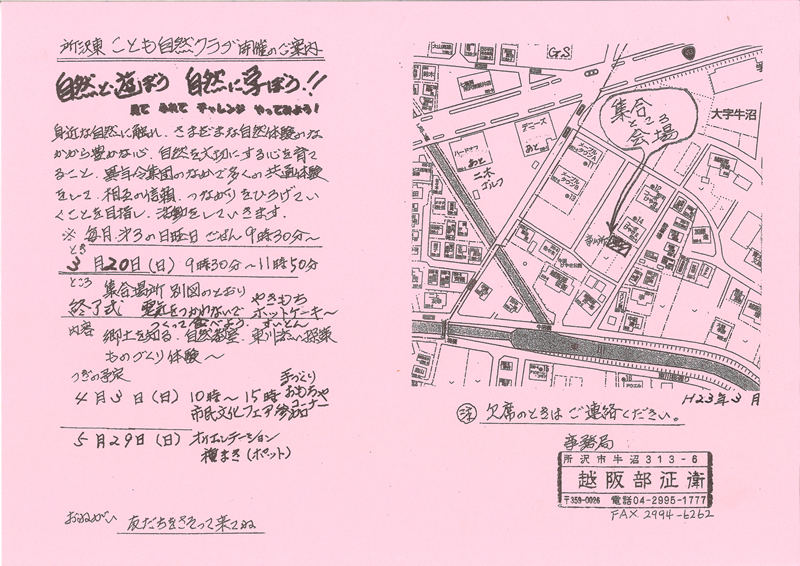 所沢東 こども自然クラブ開催のご案内
自然と遊ぼう 自然に学ぼう!!
見て ふれて チャレンジ やってみよう!
身近な自然に触れ、さまざまな自然体験のな
かから豊かな心、自然を大切にする心を育て
ること、異年令集団のなかで多くの共通体験
をして、相互の信頼、つながりをひろげてい
くことを目指し、活動をしていきます。
※ 毎月、第3の日曜日 ごぜん 9時30分〜
とき
3月20日(日) 9時30分〜11時50分
ところ 集合場所 別図のとおり
終了式 電気をつかわないで やきもち ホットケーキ〜
つくって食べよう。すいとん
内容 郷土を知る、自然観察、東川 探策
ものづくり体験〜
つぎの予定
4月3日(日) 10時〜15時 手づくり おもちゃ コーナー
市民文化フェア参加
5月29日(日) オリエンテーション
種まき(ポット)
おねがい 友だちをさそって来てね
G.S
大字牛沼
集合
ところ
会場
デニーズ
あと
ハードオフ
あと
二木
ゴルフ
メープル
タウンA
東川
H23年3月
注 欠席のときはご連絡ください。
事務局
所沢市牛沼313-6
越阪部征衛
〒359-0026 電話04-2995-1777
FAX 2994-6262